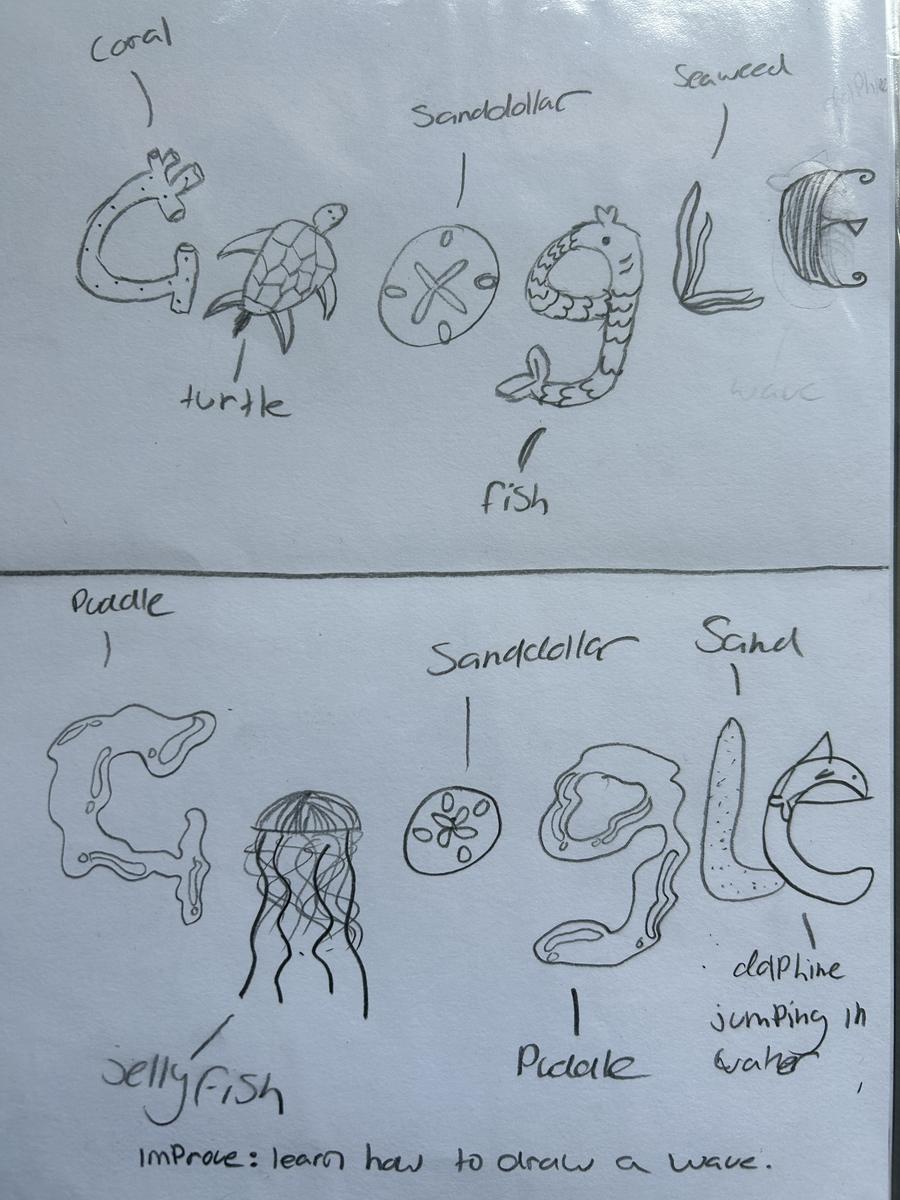 Coral
Sanddollar
Seaweed
dolphine
G g L e
turtle
wave
fish
Puddle
Sanddollar
Sand
G g l e
dolphine
jumping in
water
jellyfish
Puddle
Improve: learn how to draw a wave.